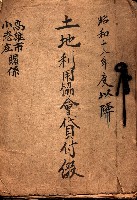 昭和十八年度以降
土地利用協會貸付綴
高雄市
小港庄
關係